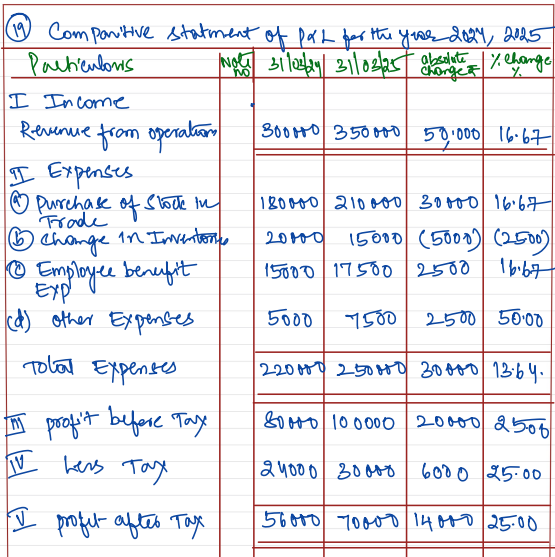 (19) Comparitive statment of P&L for the year 2024, 2025
Particulars Note no 31/03/24 31/03/25 absolute change ₹ % change %
I Income
Revenue from operation 300000 350000 50,000 16.67
II Expenses
(a) Purchase of Stock in Trade 180000 210000 30000 16.67
(b) change in Inventories 20000 15000 (5000) (2500)
(c) Employee benefit Exp 15000 17500 2500 16.67
(d) other Expenses 5000 7500 2500 50.00
Total Expenses 220000 250000 30000 13.64.
III profit before Tax 80000 100000 20000 2500
IV Less Tax 24000 30000 6000 25.00
V profit after Tax 56000 70000 14000 25.00